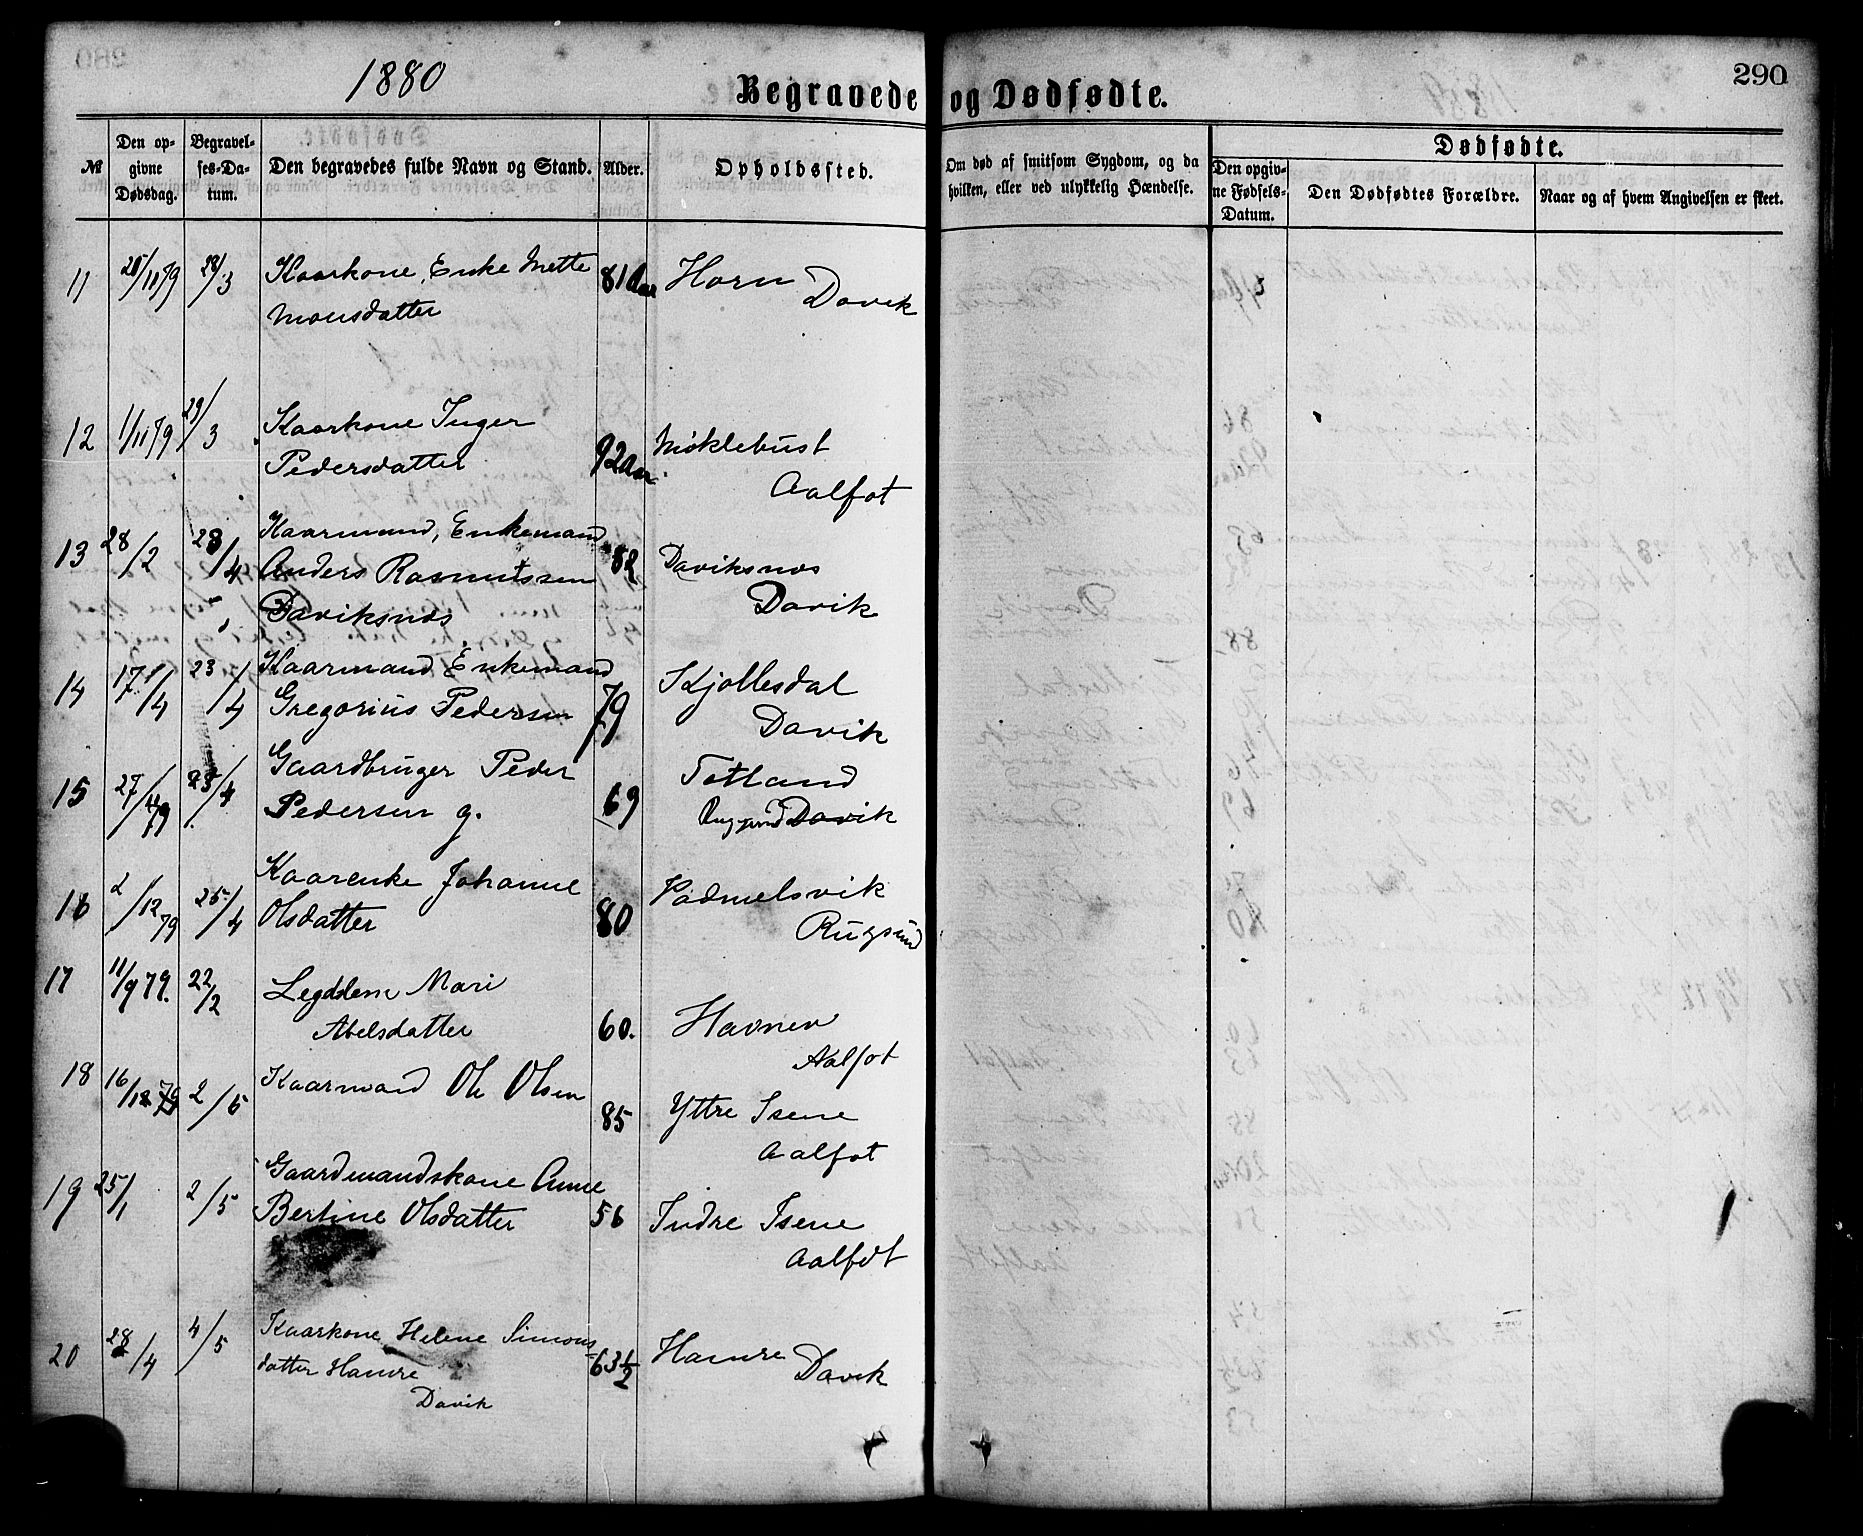 1880
Begravede og Dødfødte.
290
№
Den opgivne Dødsdag.
Begravelses-Datum.
Den begravedes fulde Navn og Stand.
Alder.
Opholdssted.
Om død af smitsom Sygdom, og da hvilken, eller ved ulykkelig Hændelse.
Dødfødte.
Den opgivne Fødsels-Datum.
Den Dødfødtes Forældre.
Naar og af hvem Angivelsen er skeet.
11 28/3 Kaarkone, Enke Mette 81 Aar Horn
Monsdatter Davik
12 1/11 79 29/3 Kaarkone Inger
Pedersdatter 92 Aar Møklebust
Aalfot
13 28/2 23/4 Kaarmand, Enkemand
Anders Rasmussen 82 Daviksnos
Daviksnos Davik
14 17/4 23/4 Kaarmand Enkemand
Gregorius Pedersen 79 Kjøllesdal
Davik
15 23/4 Gaardbruger Peder Totland
Pedersen g. 69 Davik
16 2/12 79 25/4 Kaarenke Johanne
Olsdatter 80 Padmelsvik
Rugsund
17 11/9 79. 22/2 Legdslem Mari
Abelsdatter 60. Havnen
Aalfot
18 16/12 79 2/5 Kaarmand Ole Olsen
85 Yttre Isene
Aalfot
19 25/1 2/5 Gaardmandskone Anne
Bertine Olsdatter 56 Indre Isene
Aalfot
20 28/4 4/5 Kaarkone Helene Simons-
datter Hamre 63 1/2 Hamre
Davik Davik